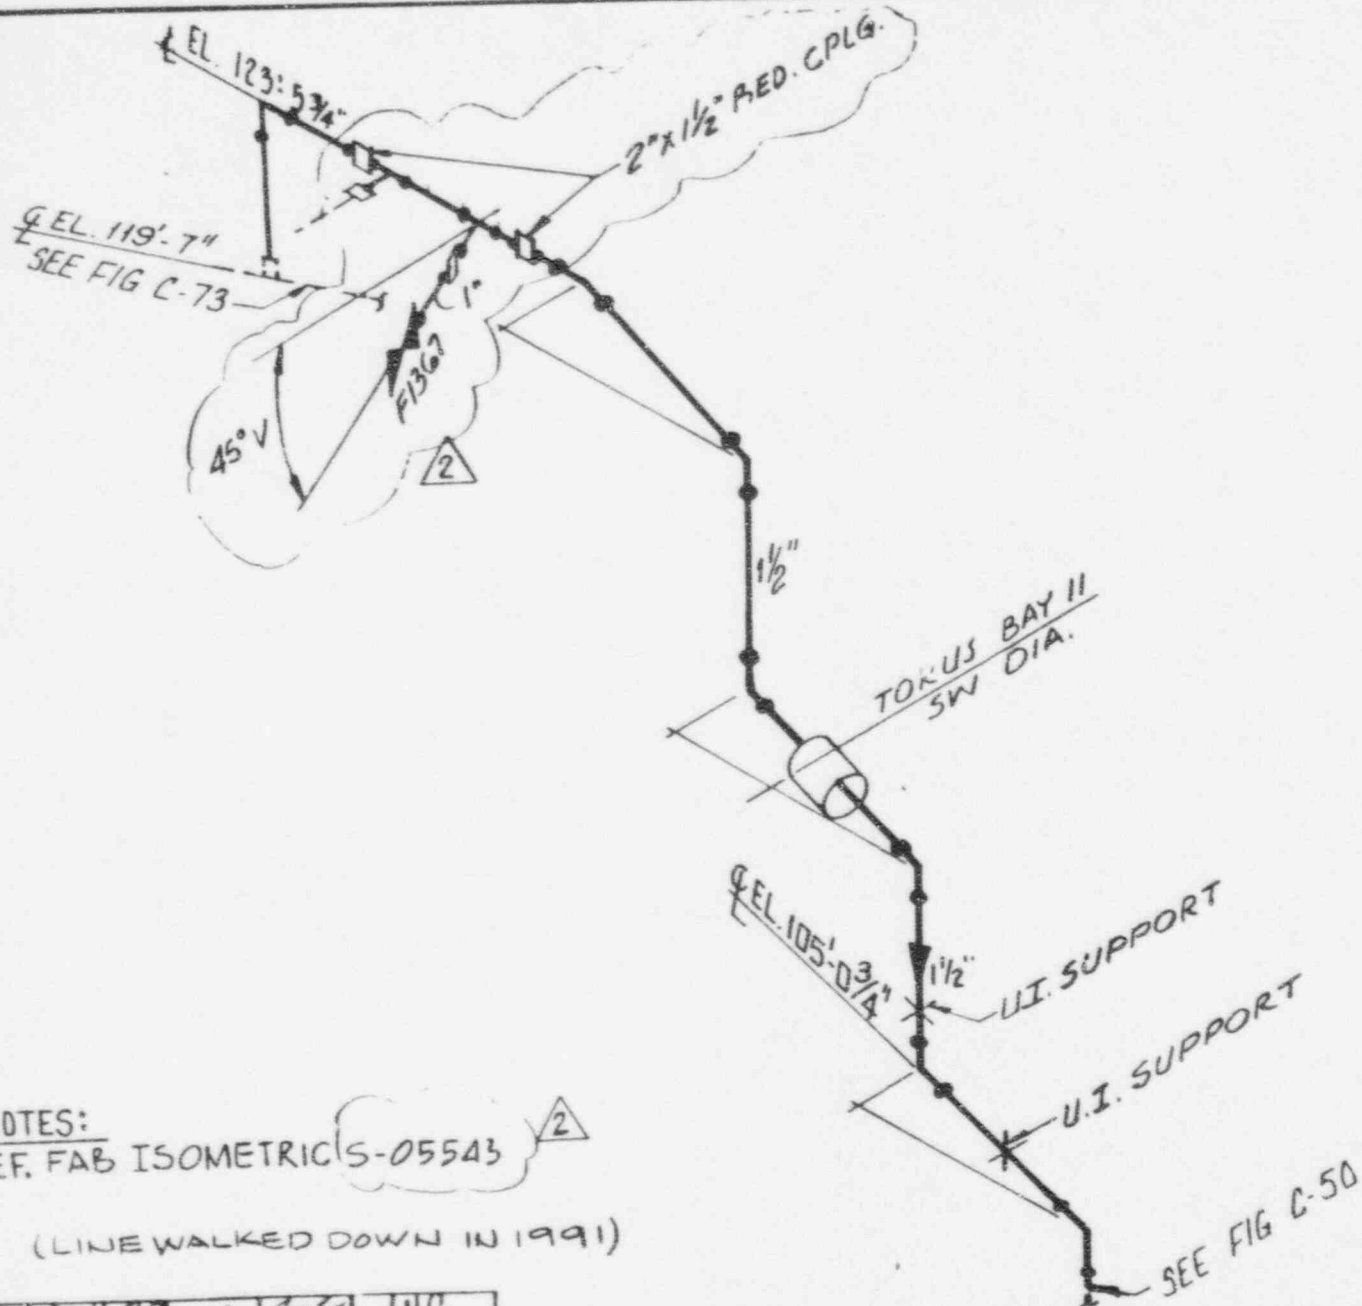 ℄ EL. 123'-5 3/4"
2" X 1 1/2" RED. CPLG.
℄ EL. 119'-7"
SEE FIG C-73
1"
F1367
45° V
2
1 1/2"
TORUS BAY 11
SW DIA.
℄ EL. 105'-0 3/4"
1 1/2"
U.I. SUPPORT
U.I. SUPPORT
OTES:
EF. FAB ISOMETRIC S-05543
2
(LINE WALKED DOWN IN 1991)
SEE FIG C-50